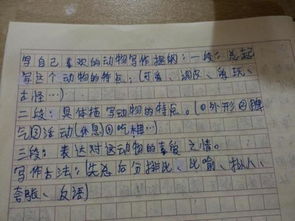 写自己喜欢的动物写作提纲:一段:总起
写这个动物的特点:(可爱、调皮、贪玩、
古怪…)
二段:具体描写动物的特点。(①外形②
③活动(休息)④吃相…)
三段:表达对这动物的喜爱之情。
写作方法:(先总后分排比、比喻、拟人、
夸张、反语)